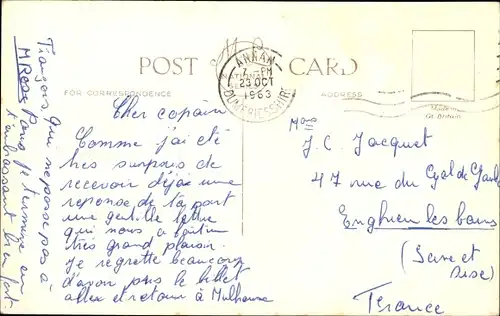 POST CARD
FOR CORRESPONDENCE
ANNAN
PM
23 OCT
1963
DUMFRIESSHIRE
Made in
Gt. Britain
Cher copain
Comme j'ai été
très surpris de
recevoir déjà une
reponse de ta part
une gentille lettre
qui nous a fait un
très grand plaisir.
Je regrette beaucoup
d'avoir pris le billet
allez et retour à Mulhouse
François qui ne passe pas à
Paris Je termine en
t'embrassant bien fort
J. C. Jacquet
47 rue du Gal de Gaulle
Enghien les bains
(Seine et
Oise)
France